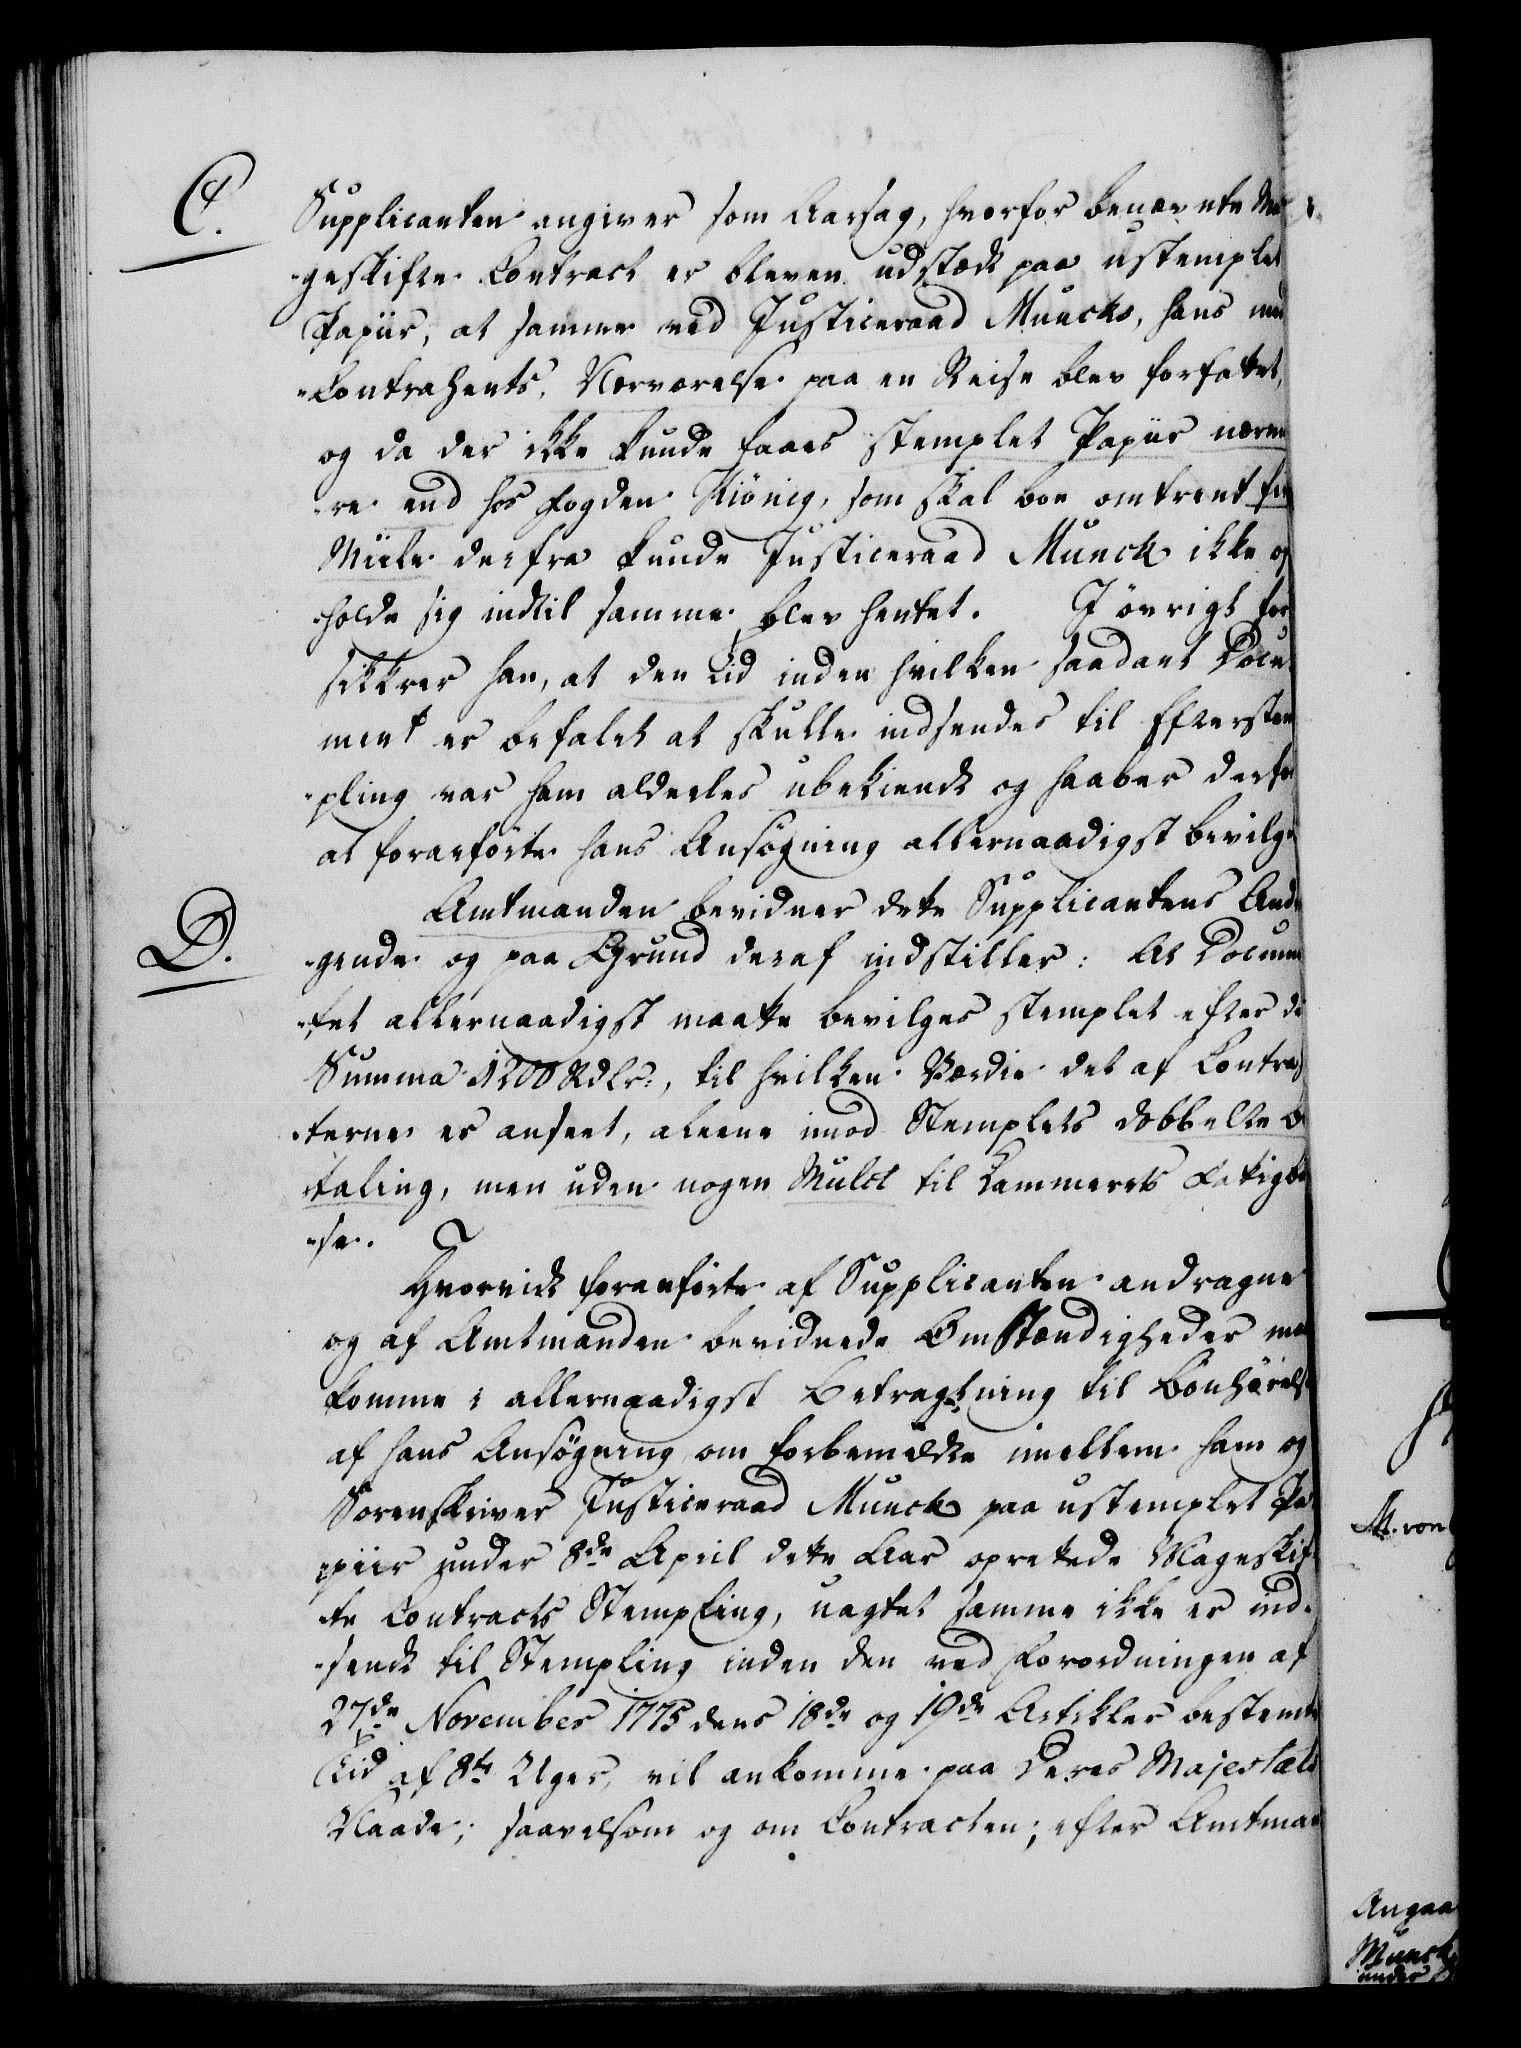 C.
Supplicanten angiver som Aarsag, hvorfor benævnte Ma-
-geskifte Contract er bleven udstædt paa ustemplet
Papiir, at samme ved Justiceraad Muncks, hans med
-Contrahents, Nærværelse paa en Reise blev forfattet,
og da der ikke kunde faaes stemplet Papiir nærme-
-re end hos Fogden Kiönig, som skal boe omtrent
Miile derfra kunde Justiceraad Munck ikke op
-holde sig indtil samme blev hentet. I øvrigt for
sikkrer han, at den Tid inden hvilken saadant Docu-
ment er befalet at skulle indsendes til Efterstem
-pling var ham aldeeles ubekiendt og haaber derfor
at foranførte hans Ansøgning allernaadigst bevilges
D.
Amtmanden bevidner dette Supplicantens Andra
-gende og paa Grund deraf indstiller: At Documen
-tet allernaadigst maatte bevilges stemplet efter de
Summa 1200 Rdlr:, til hvilken Værdie det af Contra
-terne er anseet, aleene imod Stemplets dobbelte Be
-taling, men uden nogen Mulct til Cammerets Fattigkas
-se.
Hvorvidt foranførte af Supplicanten andragne
og af Amtmanden bevidnede Omstændigheder maa
komme i allernaadigst Betragtning til Bønhørelse
af hans Ansøgning om forbemeldte imellem ham og
Sorenskriver Justiceraad Munck paa ustemplet Pa
-piir under 8de April dette Aar oprettede Mageskif-
-te Contracts Stempling, uagtet samme ikke er ind-
-sendt til Stempling inden den ved Forordningen af
27de November 1775 dens 18de og 19de Artikler bestemte
Tid af 8te Uger, vil ankomme paa Deres Majestæts
Naade; saavelsom og om Contracten; efter Amtman
M. von
Angaa
Munck
under